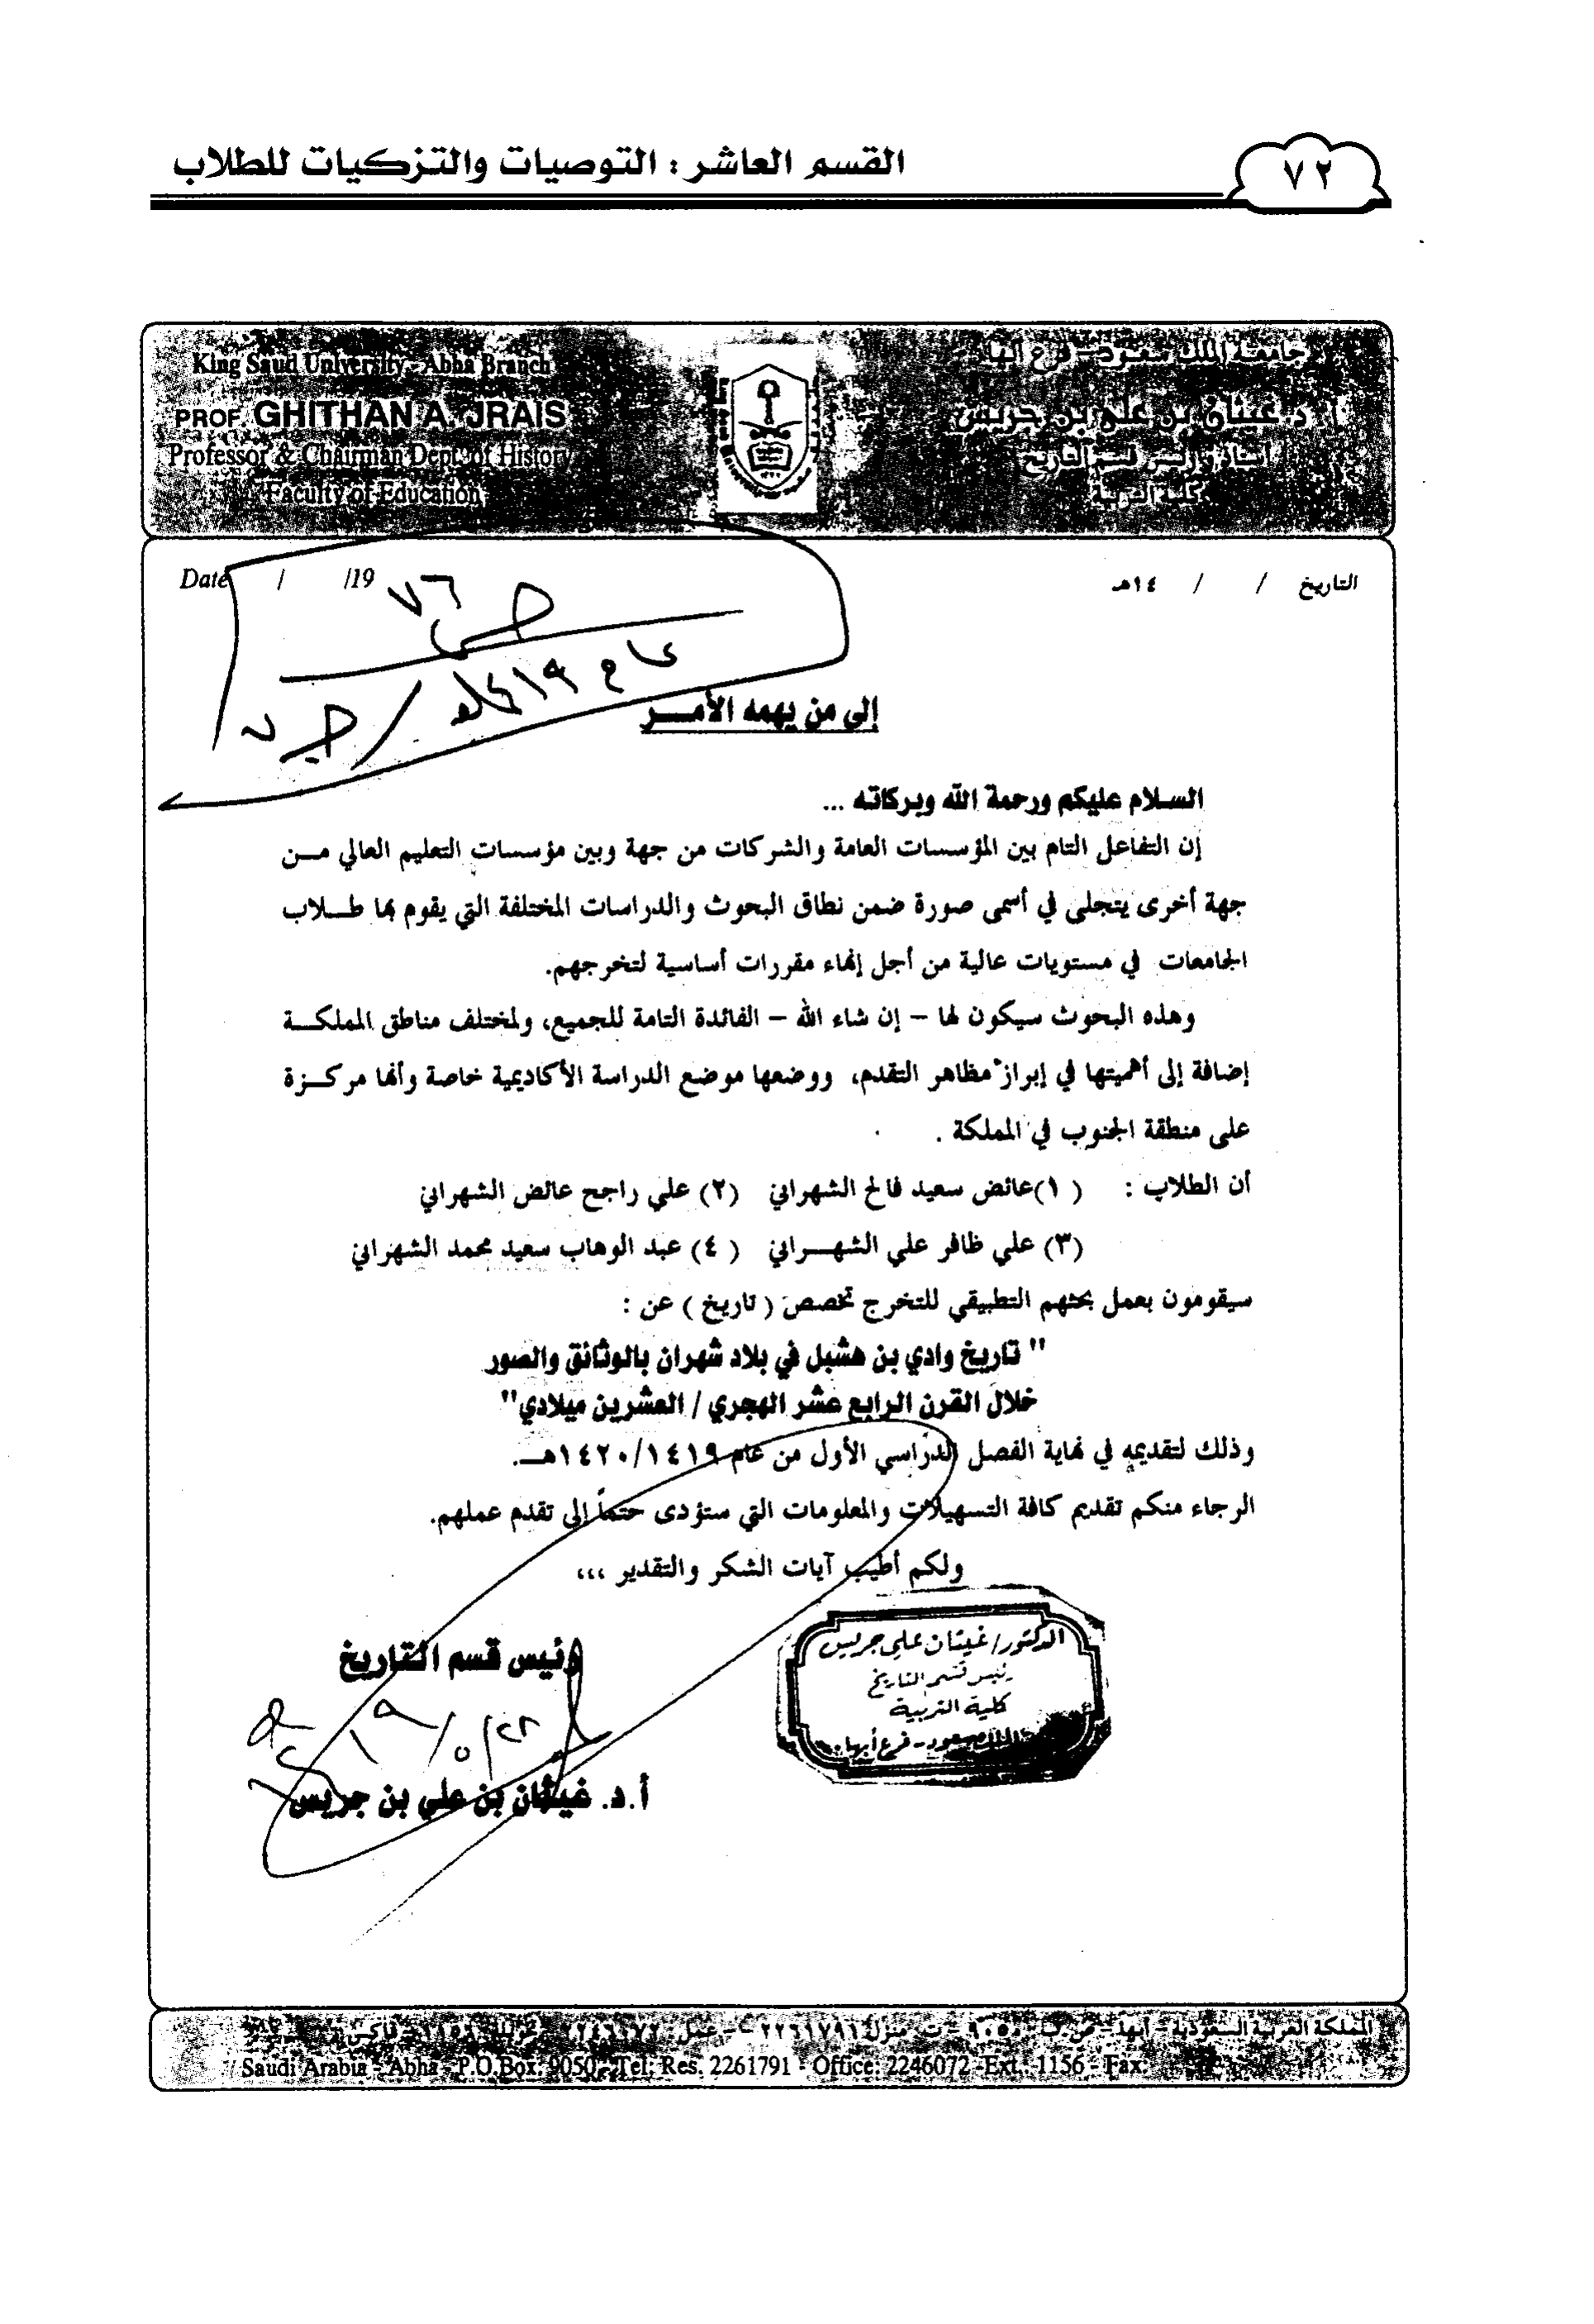 ٧٢
القسم العاشر : التوصيات والتزكيات للطلاب
King Saud University - Abha Branch
PROF. GHITHAN A. JRAIS
Professor & Chairman Dept. of History
Faculty of Education
جامعة الملك سعود - فرع أبها
أ . د. غيثان بن علي بن جريس
أستاذ ورئيس قسم التاريخ
كلية التربية
التاريخ / / ١٤هـ
Date / /19
٧٦
عام ١٤١٩هـ /
إلى من يهمه الأمــــر
السلام عليكم ورحمة الله وبركاته ...
إن التفاعل التام بين المؤسسات العامة والشركات من جهة وبين مؤسسات التعليم العالي مــن
جهة أخرى يتجلى في أسمى صورة ضمن نطاق البحوث والدراسات المختلفة التي يقوم بها طــلاب
الجامعات في مستويات عالية من أجل إنهاء مقررات أساسية لتخرجهم.
وهذه البحوث سيكون لها – إن شاء الله – الفائدة التامة للجميع، ولمختلف مناطق المملكــة
إضافة إلى أهميتها في إبراز مظاهر التقدم، ووضعها موضع الدراسة الأكاديمية خاصة وأنها مركــزة
على منطقة الجنوب في المملكة .
أن الطلاب : (١) عائض سعيد فالح الشهراني (٢) علي راجح عائض الشهراني
(٣) علي ظافر علي الشهـــراني (٤) عبد الوهاب سعيد محمد الشهراني
سيقومون بعمل بحثهم التطبيقي للتخرج تخصص ( تاريخ ) عن :
" تاريخ وادي بن هشبل في بلاد شهران بالوثائق والصور
خلال القرن الرابع عشر الهجري / العشرين ميلادي"
وذلك لتقديمه في نهاية الفصل الدراسي الأول من عام ١٤٢٠/١٤١٩هــ.
الرجاء منكم تقديم كافة التسهيلات والمعلومات التي ستؤدى حتماً إلى تقدم عملهم.
ولكم أطيب آيات الشكر والتقدير ،،،
رئيس قسم التاريخ
أ.د. غيثان بن علي بن جريس
الدكتور/ غيثان علي جريس
رئيس قسم التاريخ
كلية التربية
الملك سعود - فرع أبها
المملكة العربية السعودية - أبها - ص.ب ٩٠٥٠ - ت منزل ٢٢٦١٧٩١ - عمل : ٢٢٤٦٠٧٢ - تحويلة ١١٥٦ - فاكس
Saudi Arabia - Abha - P.O.Box. 9050 - Tel: Res. 2261791 - Office: 2246072 - Ext.: 1156 - Fax: